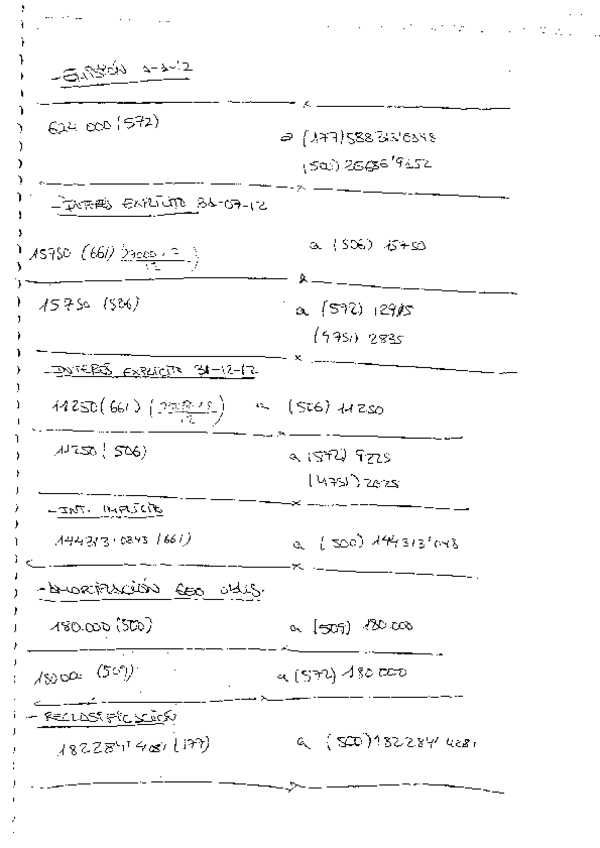 - EMISIÓN 1-1-12
624 000 (572)
a (177) 588 313'0348
(500)
- INTERÉS EXPLÍCITO 31-07-12
15750 (661) a (506) 15750
15750 (506) a (572) 12915
(4751) 2835
- INTERÉS EXPLÍCITO 31-12-12
11250 (661) a (506) 11250
11250 (506) a (572) 9225
(4751) 2025
- INT. IMPLÍCITO
(661) a (500)
- AMORTIZACIÓN 600 OBLIG.
180.000 (500) a (509) 180.000
(509) a (572) 180 000
- RECLASIFICACIÓN
182284'4281 (177) a (500) 182284'4281